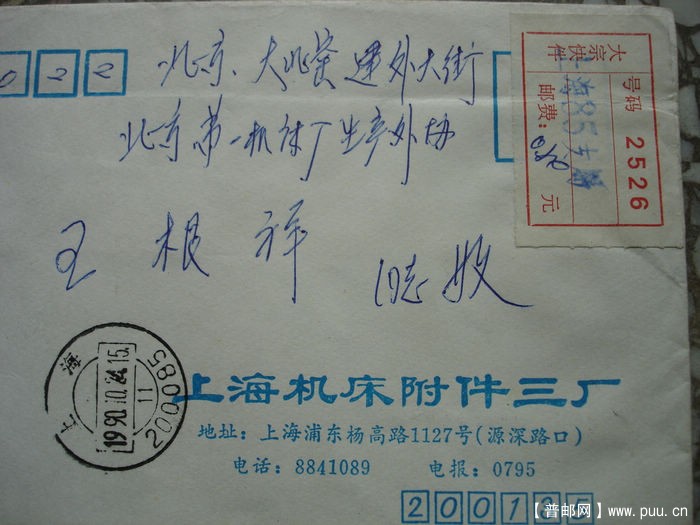 022
北京、大北窑建外大街
北京第一机床厂生产外协
王根祥 同志收
大宗快件
号码 2526
上海85支局
邮费:0.80元
上海
1990.10.24.15
11
200085
上海机床附件三厂
地址:上海浦东杨高路1127号(源深路口)
电话:8841089 电报:0795
200135
【普邮网】www.puu.cn